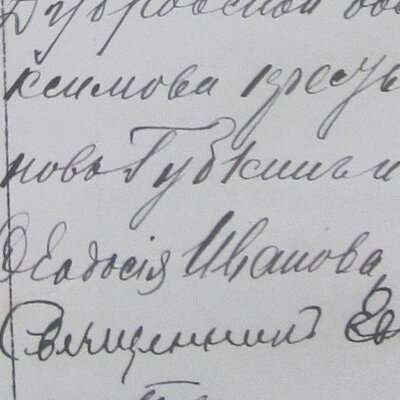 Дубровской
ксимова
нова Губкинъ и
Ѳеодосія Иванова
Священникъ Ев